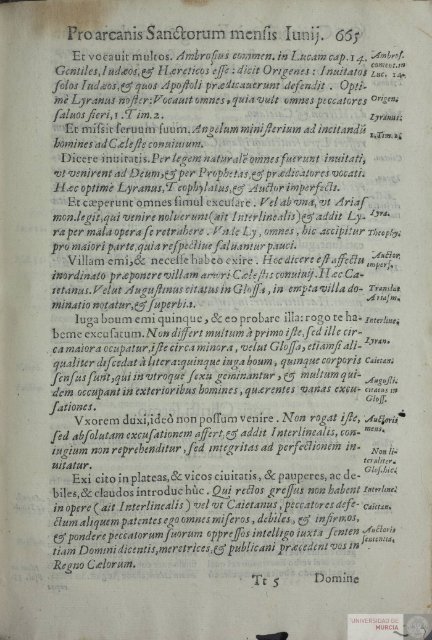 Pro arcanis Sanctorum mensis Iunij. 665
Et vocauit multos. Ambrosius commen. in Lucam cap. 14.
Gentiles, Iudæos, & Hæreticos esse: dicit Origenes: Inuitatos
solos Iudæos, & quos Apostoli prædicauerunt defendit. Opti-
mè Lyranus noster: Vocauit omnes, quia vult omnes peccatores
saluos fieri, 1. Tim. 2.
Et misit seruum suum. Angelum ministerium ad incitandū
homines ad Cæleste conuiuium.
Dicere inuitatis. Per legem naturalē omnes fuerunt inuitati,
vt venirent ad Deum, & per Prophetas, & prædicatores vocati.
Hæc optimè Lyranus, Teophylatus, & Auctor imperfecti.
Et cœperunt omnes simul excusare. Vel ab vna, vt Arias
mon. legit, qui venire noluerunt (ait Interlinealis) & addit Ly-
ra per mala opera se retrahere. Vnde Ly, omnes, hic accipitur
pro maiori parte, quia respectiue saluantur pauci.
Villam emi, & necesse habeo exire. Hoc dicere est affectū
inordinato præponere villam amori Cælestis conuiuij. Hæc Ca-
ietanus. Velut Augustinus citatus in Glossa, in empta villa do-
minatio notatur, & superbia.
Iuga boum emi quinque, & eo probare illa: rogo te ha-
beme excusatum. Non differt multum à primo iste, sed ille cir-
ca maiora ocupatur, iste circa minora, velut Glossa, etiamsi ali-
qualiter discedat à litera: quinque iuga boum, quinque corporis
sensus sunt, qui in vtroque sexu geminantur, & multum qui-
dem occupant in exterioribus homines, quærentes vanas excu-
sationes.
Vxorem duxi, ideò non possum venire. Non rogat iste,
sed absolutam excusationem affert, & addit Interlinealis, con-
iugium non reprehenditur, sed integritas ad perfectionem in-
uitatur.
Exi cito in plateas, & vicos ciuitatis, & pauperes, ac de-
biles, & claudos introduc hûc. Qui rectos gressus non habent
in opere (ait Interlinealis) vel vt Caietanus, peccatores defe-
ctum aliquem patentes ego omnes miseros, debiles, & infirmos,
& pondere peccatorum suorum oppressos intelligo iuxta senten
tiam Domini dicentis, meretrices, & publicani præcedent vos in
Regno Cælorum.
Tt 5 Domine
Ambros.
coment. in
Luc. 14.
Origen.
Lyranus.
1. Tim. 2.
Lyra.
Theophy.
Auctor
imperf.
Translat.
Ariasm.
Interline.
Lyran.
Caietan.
Augusti.
citatus in
Gloss.
Auctoris
mens.
Non li-
teraliter.
Glos. hic.
Interline.
Caietan.
Auctoris
sententia.
UNIVERSIDAD DE
MURCIA